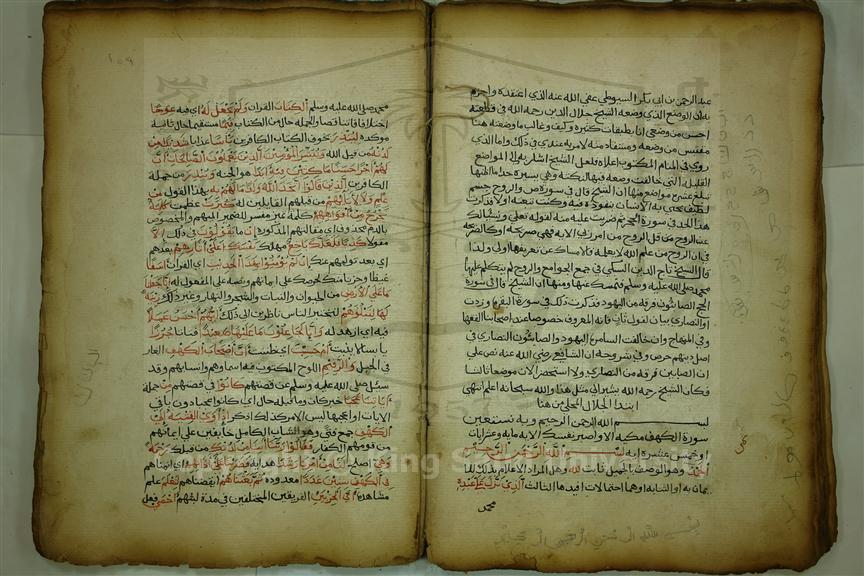 عبد الرحمن بن ابي بكر السيوطي عفي الله عنه الذي اعتقده واجزم
به ان الوضع الذي وضعه الشيخ جلال الدين رحمه الله في قطعته
احسن من وضعي انا بطبقات كثيرة وكيف وغالب ما وضعته هنا
مقتبس من وضعه ومستفاد منه لا مرية عندي في ذلك واما الذي
روي في المنام المكتوب اعلاه فلعل الشيخ اشار به الى المواضع
القليلة التي خالفت وضعه فيها لنكتة وهي يسيرة جدا ما اظنها
تبلغ عشرة مواضع منها ان الشيخ قال في سورة ص والروح جسم
لطيف يحيى به الانسان بنفوذه فيه وكنت تبعته اولا فذكرت
هذا الحد في سورة الحجر ثم ضربت عليه منه لقوله تعالى ويسئلونك
عن الروح قل الروح من امر ربي الاية فهي صريحة او كالصريحة
في ان الروح من علم الله لا يعلمه فالامساك عن تعريفها اولى ولذا
قال الشيخ تاج الدين السبكي في جمع الجوامع والروح لم يتكلم عليها
محمد صلى الله عليه وسلم فنمسك عنها ومنها ان الشيخ قال في سورة
الحج الصابئون فرقة من اليهود فذكرت ذلك في سورة البقرة وزدت
او النصارى بيان لقول ثان فانه المعروف خصوصا عند اصحابنا الفقها
وفي المنهاج وان خالفت السامرة اليهود والصابئون النصارى في
اصل دينهم حرمن وفي شروحه ان الشافعي رضي الله عنه نص على
ان الصابين فرقة من النصارى ولا استحضر الان موضعا ثالثا
فكان الشيخ رحمه الله يشير الى مثل هذا والله سبحانه اعلم انتهى
ابتدا الجلال المحلي من هنا
بسم الله الرحمن الرحيم وبه نستعين
سورة الكهف مكية الا واصبر نفسك الاية ماية وعشر ايات
او وخمس عشرة اية بسم الله الرحمن الرحيم
الحمد وهو الوصف بالجميل ثابت لله وهل المراد الاعلام بذلك للا
يمان به او الثنا به او هما احتمالات افيدها الثالث الذي انزل على عبده
محمد
محمد صلى الله عليه وسلم الكتاب القران ولم يجعل له اي فيه عوجا
اختلافا وتناقضا والجملة حال من الكتاب قيما مستقيما حال ثانية
موكدة لينذر يخوف الكتاب الكافرين باسا عذابا شديدا من
لدنه من قبل الله ويبشر المومنين الذين يعملون الصالحات ان
لهم اجرا حسنا ماكثين فيه ابدا هو الجنة وينذر من جملة
الكافرين الذين قالوا اتخذ الله ولدا ما لهم به بهذا القول من
علم ولا لابائهم من قبلهم القايلين له كبرت عظمت كلمة
تخرج من افواههم كلمة تمييز مفسر للضمير المبهم والمخصوص
بالذم محذوف اي مقالتهم المذكورة ان ما يقولون في ذلك الا
مقولا كذبا فلعلك باخع مهلك نفسك على اثارهم بعدهم
اي بعد توليهم عنك ان لم يومنوا بهذا الحديث اي القران اسفا
غيظا وحزنا منك لحرصك على ايمانهم ونصبه على المفعول له انا جعلنا
ما على الارض من الحيوان والنبات والشجر والانهار وغير ذلك زينة
لها لنبلوهم لنختبر الناس ناظرين الى ذلك ايهم احسن عملا
فيه اي ازهد له وانا لجاعلون ما عليها صعيدا فتاتا جرزا
يابسا لا ينبت ام حسبت اي ظننت ان اصحاب الكهف الغار
في الجبل والرقيم اللوح المكتوب فيه اسماوهم وانسابهم وقد
سئل صلى الله عليه وسلم عن قصتهم كانوا في قصتهم من جملة
اياتنا عجبا خبر كان وما قبله حال اي كانوا عجبا دون باقي
الايات او اعجبها ليس الامر كذلك اذكر اذ اوى الفتية الى
الكهف جمع فتى وهو الشاب الكامل خايفين على ايمانهم
من قومهم الكفار فقالوا ربنا اتنا من لدنك من قبلك رحمة
وهيئ اصلح لنا من امرنا رشدا هداية فضربنا على اذانهم اي انمناهم
في الكهف سنين عددا معدودة ثم بعثناهم ايقظناهم لنعلم علم
مشاهدة اي الحزبين الفريقين المختلفين في مدة لبثهم احصى فعل